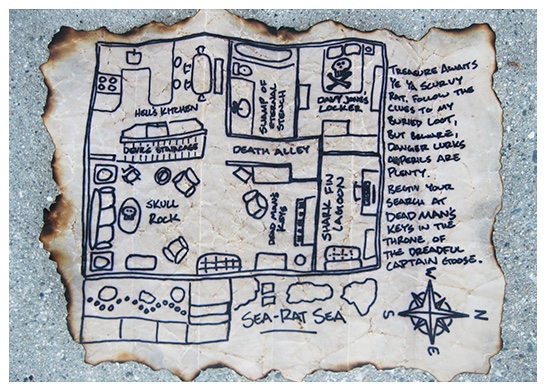 HELL'S KITCHEN
DEVIL'S STAIRCASE
SWAMP OF
ETERNAL
STENCH
DAVY JONES
LOCKER
DEATH ALLEY
SKULL
ROCK
DEAD MAN'S
KEYS
SHARK FIN
LAGOON
SEA-RAT SEA
TREASURE AWAITS
YE YA SCURVY
RAT. FOLLOW THE
CLUES TO MY
BURIED LOOT,
BUT BEWARE,
DANGER LURKS
PERILS ARE
PLENTY.
BEGIN YOUR
SEARCH AT
DEAD MAN'S
KEYS IN THE
THRONE OF
THE DREADFUL
CAPTAIN GOOSE.
W
S N
E